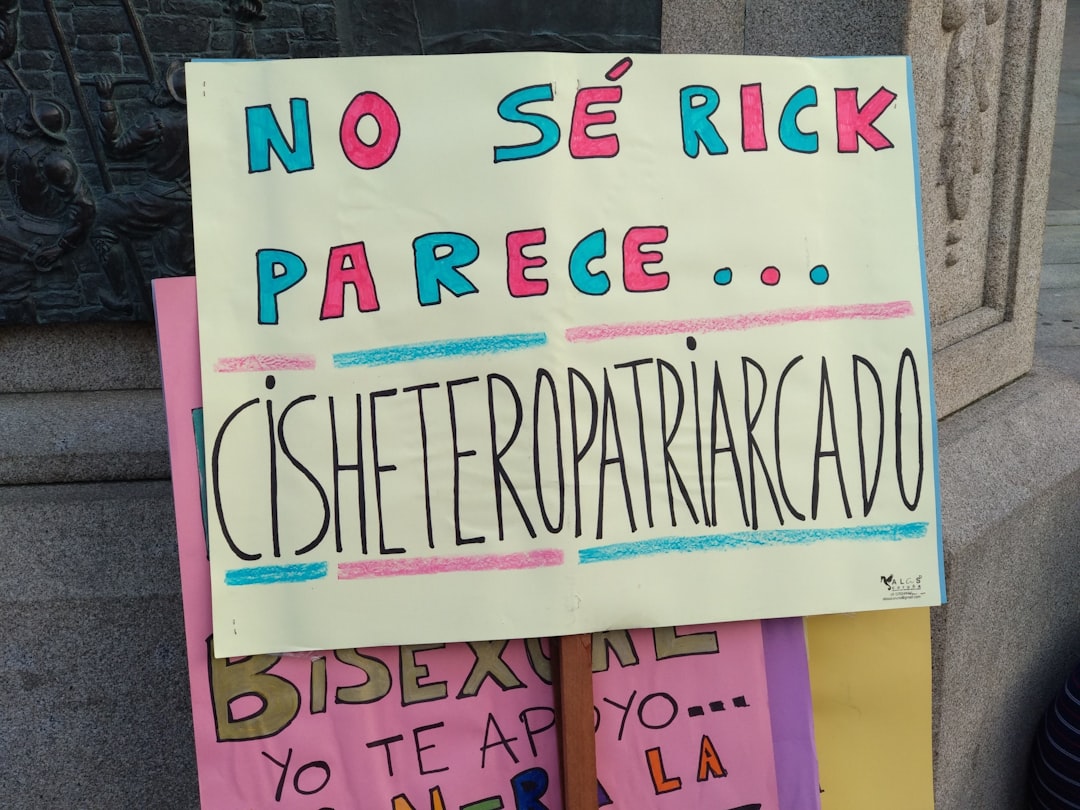 NO SÉ RICK
PARECE...
CISHETEROPATRIARCADO
ALAS
BISEXUAL
YO TE APOYO...
LA